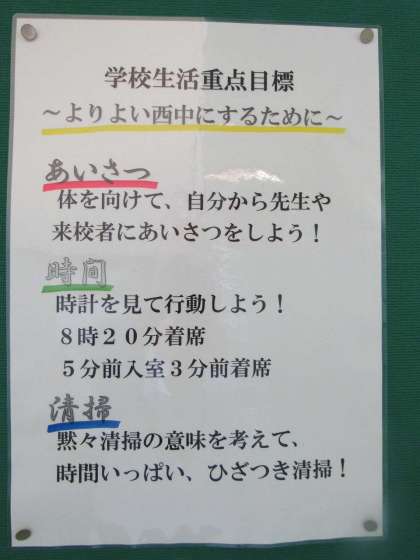 学校生活重点目標
～よりよい西中にするために～
あいさつ
体を向けて、自分から先生や
来校者にあいさつをしよう！
時間
時計を見て行動しよう！
８時２０分着席
５分前入室３分前着席
清掃
黙々清掃の意味を考えて、
時間いっぱい、ひざつき清掃！